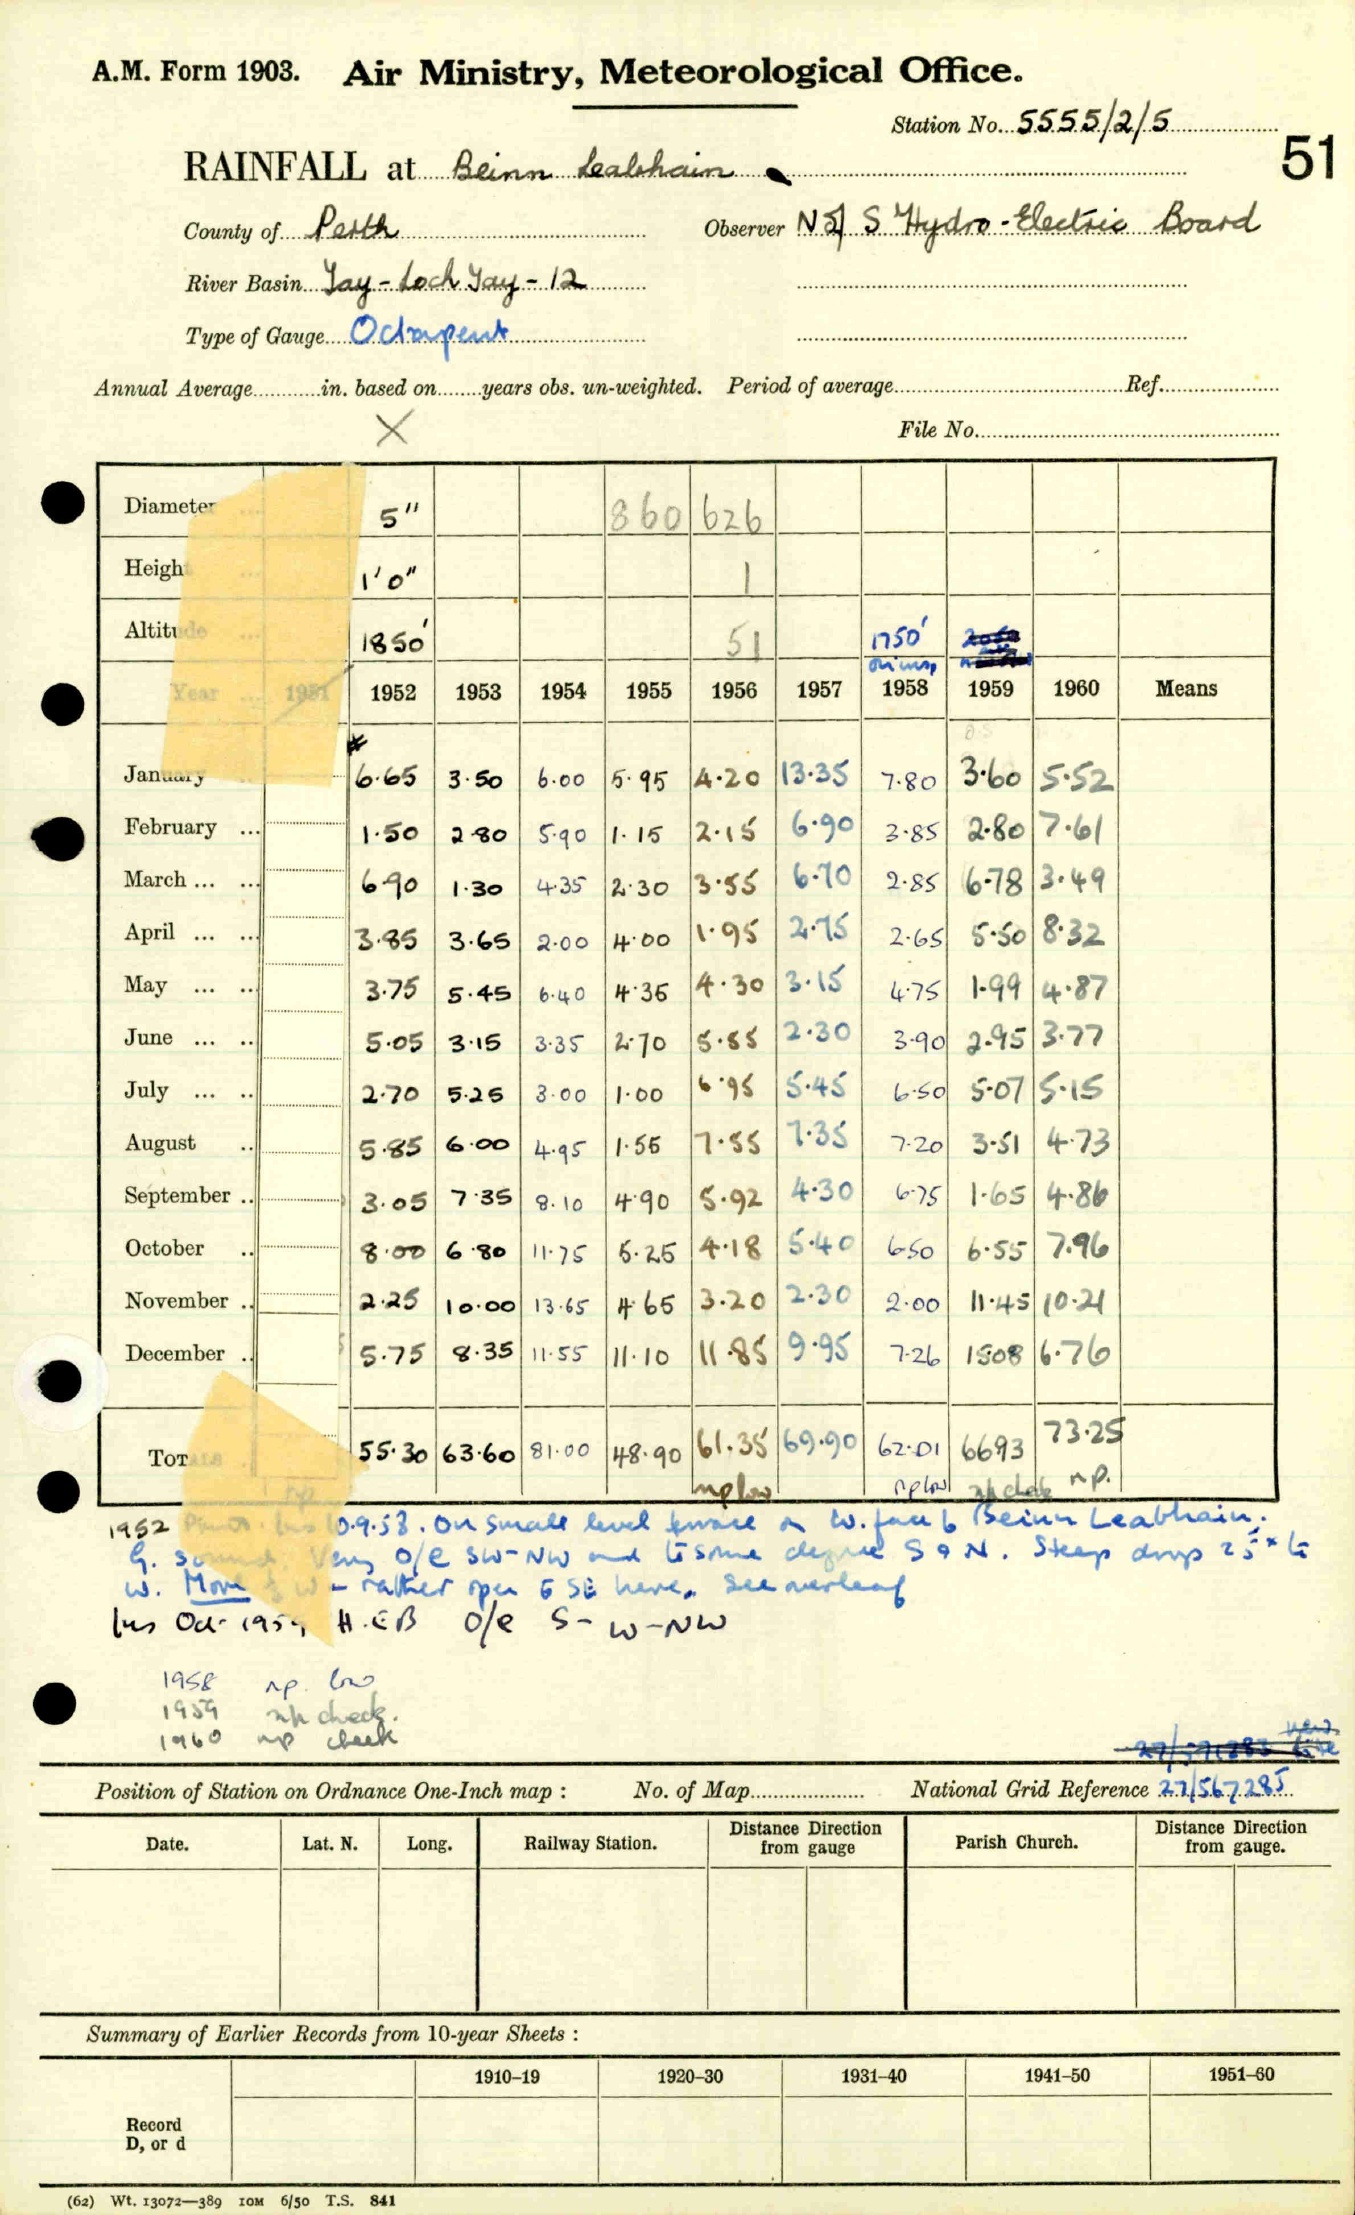 A.M. Form 1903. Air Ministry, Meteorological Office.
Station No. 5555/2/5
51
RAINFALL at Beinn Leabhain
County of Perth Observer N of S Hydro-Electric Board
River Basin Tay - Loch Tay - 12
Type of Gauge Octapent
Annual Average in. based on years obs. un-weighted. Period of average Ref.
X
File No.
Diameter ... 5" 860 626
Height ... 1'0" 1
Altitude ... 1850' 51 1750'
Year ... 1951 1952 1953 1954 1955 1956 1957 1958 1959 1960 Means
January 6.65 3.50 6.00 5.95 4.20 13.35 7.80 3.60 5.52
February ... 1.50 2.80 5.90 1.15 2.15 6.90 3.85 2.80 7.61
March ... ... 6.90 1.30 4.35 2.30 3.55 6.70 2.85 6.78 3.49
April ... ... 3.85 3.65 2.00 4.00 1.95 2.75 2.65 5.50 8.32
May ... ... 3.75 5.45 6.40 4.35 4.30 3.15 4.75 1.99 4.87
June ... ... 5.05 3.15 3.35 2.70 5.55 2.30 3.90 2.95 3.77
July ... ... 2.70 5.25 3.00 1.00 6.95 5.45 6.50 5.07 5.15
August .. 5.85 6.00 4.95 1.55 7.55 7.35 7.20 3.51 4.73
September .. 3.05 7.35 8.10 4.90 5.92 4.30 6.75 1.65 4.86
October .. 8.00 6.80 11.75 5.25 4.18 5.40 6.50 6.55 7.96
November .. 2.25 10.00 13.65 4.65 3.20 2.30 2.00 11.45 10.21
December .. 5.75 8.35 11.55 11.10 11.85 9.95 7.26 15.08 6.76
TOTALS 55.30 63.60 81.00 48.90 61.35 69.90 62.01 66.93 73.25
np np low np low np check np.
1952 Ins 10.9.53. On small level terrace on W. face of Beinn Leabhain.
G. sound. Very O/e SW-NW and to some degree S & N. Steep drop 25x to
W. Move W - rather open to SE here. See overleaf
Ins Oct 1959 H.E.B O/e S- W-NW
1958 np. low
1959 np check.
1960 np check
Position of Station on Ordnance One-Inch map : No. of Map National Grid Reference 27/567285
Date. Lat. N. Long. Railway Station. Distance Direction from gauge Parish Church. Distance Direction from gauge.
Summary of Earlier Records from 10-year Sheets :
1910–19 1920–30 1931–40 1941–50 1951–60
Record
D, or d
(62) Wt. 13072—389 10M 6/50 T.S. 841